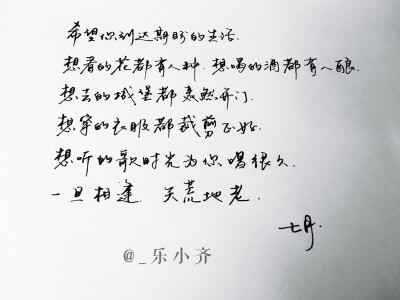 希望你到达期盼的生活.
想看的花都有人种.想喝的酒都有人酿.
想去的城堡都轰然开门.
想穿的衣服都裁剪正好.
想听的歌时光为你唱很久.
一旦相逢.天荒地老.
七月.
@_乐小齐